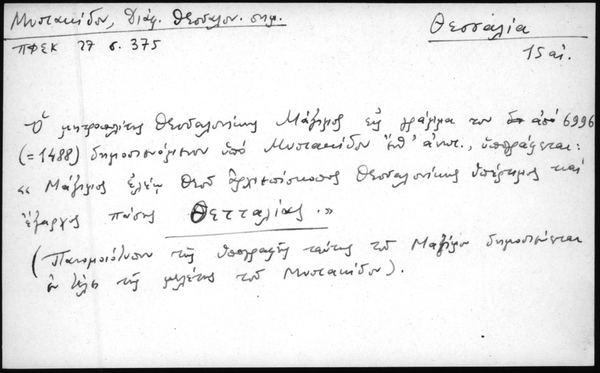 Μυστακίδου, Διάφ. Θεσσαλον. σημ.
ΠΦΕΚ 27 σ. 375
Θεσσαλία
15 αι.
Ὁ μητροπολίτης Θεσσαλονίκης Μάξιμος εἰς γράμμα του ἀπό 6996
(=1488) δημοσιευόμενον ὑπό Μυστακίδου ἔνθ' ἀνωτ., ὑπογράφεται:
« Μάξιμος ἐλέῳ Θεοῦ ἀρχιεπίσκοπος Θεσσαλονίκης ὑπέρτιμος καί
ἔξαρχος πάσης Θετταλίας.»
(Πανομοιότυπον τῆς ὑπογραφῆς ταύτης τοῦ Μαξίμου δημοσιεύεται
ἐν τέλει τῆς μελέτης τοῦ Μυστακίδου).